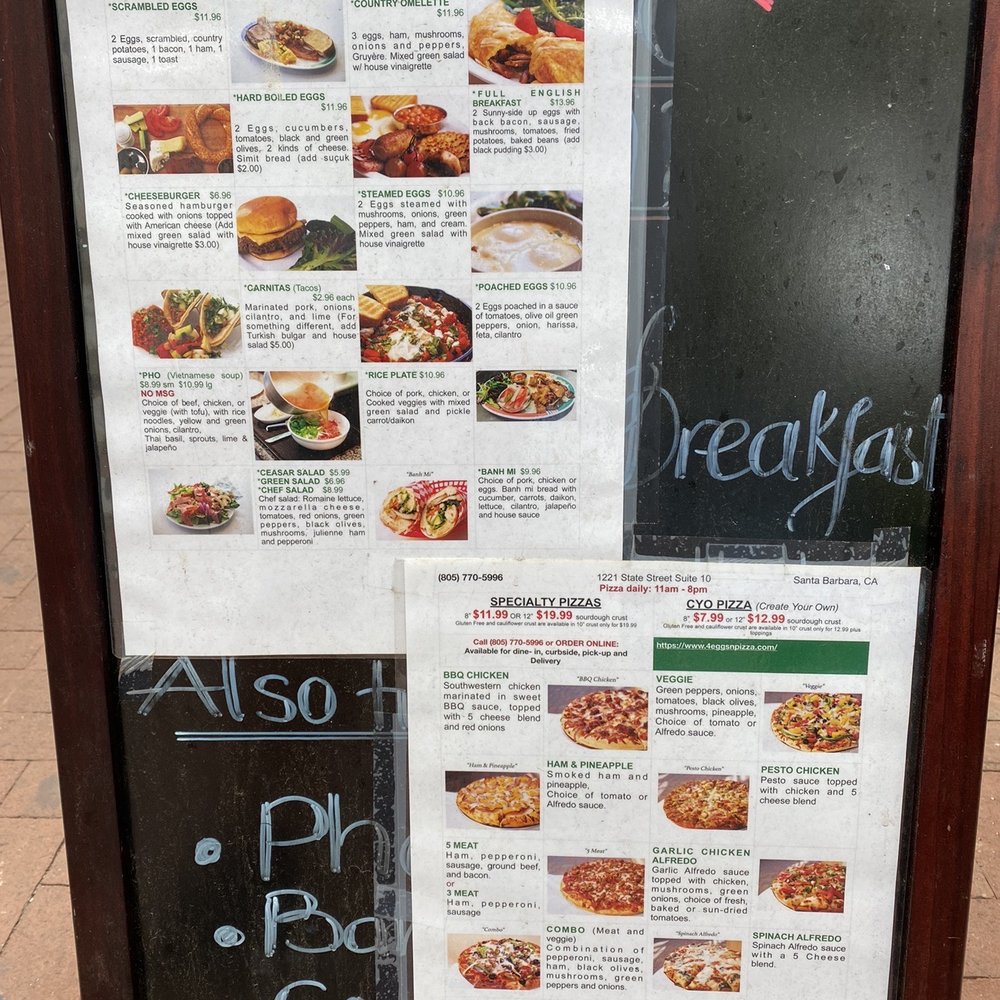 *SCRAMBLED EGGS
$11.96
2 Eggs, scrambled, country
potatoes, 1 bacon, 1 ham, 1
sausage, 1 toast
*COUNTRY OMELETTE
$11.96
3 eggs, ham, mushrooms,
onions and peppers,
Gruyère. Mixed green salad
w/ house vinaigrette
*HARD BOILED EGGS
$11.96
2 Eggs, cucumbers,
tomatoes, black and green
olives, 2 kinds of cheese.
Simit bread (add suçuk
$2.00)
*FULL ENGLISH
BREAKFAST $13.96
2 Sunny-side up eggs with
back bacon, sausage,
mushrooms, tomatoes, fried
potatoes, baked beans (add
black pudding $3.00)
*CHEESEBURGER $6.96
Seasoned hamburger
cooked with onions topped
with American cheese (Add
mixed green salad with
house vinaigrette $3.00)
*STEAMED EGGS $10.96
2 Eggs steamed with
mushrooms, onions, green
peppers, ham, and cream.
Mixed green salad with
house vinaigrette
*CARNITAS (Tacos)
$2.96 each
Marinated pork, onions,
cilantro, and lime (For
something different, add
Turkish bulgar and house
salad $5.00)
*POACHED EGGS $10.96
2 Eggs poached in a sauce
of tomatoes, olive oil green
peppers, onion, harissa,
feta, cilantro
*PHO (Vietnamese soup)
$8.99 sm $10.99 lg
NO MSG
Choice of beef, chicken, or
veggie (with tofu), with rice
noodles, yellow and green
onions, cilantro,
Thai basil, sprouts, lime &
jalapeño
*RICE PLATE $10.96
Choice of pork, chicken, or
Cooked veggies with mixed
green salad and pickle
carrot/daikon
*CEASAR SALAD $5.99
*GREEN SALAD $6.96
*CHEF SALAD $8.99
Chef salad: Romaine lettuce,
mozzarella cheese,
tomatoes, red onions, green
peppers, black olives,
mushrooms, julienne ham
and pepperoni
"Banh Mi"
*BANH MI $9.96
Choice of pork, chicken or
eggs. Banh mi bread with
cucumber, carrots, daikon,
lettuce, cilantro, jalapeño
and house sauce
Breakfast
Also
(805) 770-5996
1221 State Street Suite 10
Santa Barbara, CA
Pizza daily: 11am - 8pm
SPECIALTY PIZZAS
8" $11.99 OR 12" $19.99 sourdough crust
Gluten Free and cauliflower crust are available in 10" crust only for $19.99
CYO PIZZA (Create Your Own)
8" $7.99 or 12" $12.99 sourdough crust
Gluten Free and cauliflower crust are available in 10" crust only for 12.99 plus
toppings
Call (805) 770-5996 or ORDER ONLINE:
Available for dine- in, curbside, pick-up and
Delivery
https://www.4eggsnpizza.com/
BBQ CHICKEN
Southwestern chicken
marinated in sweet
BBQ sauce, topped
with 5 cheese blend
and red onions
"BBQ Chicken"
VEGGIE
Green peppers, onions,
tomatoes, black olives,
mushrooms, pineapple,
Choice of tomato or
Alfredo sauce.
"Veggie"
"Ham & Pineapple"
HAM & PINEAPPLE
Smoked ham and
pineapple,
Choice of tomato or
Alfredo sauce.
"Pesto Chicken"
PESTO CHICKEN
Pesto sauce topped
with chicken and 5
cheese blend
5 MEAT
Ham, pepperoni,
sausage, ground beef,
and bacon.
or
3 MEAT
Ham, pepperoni,
sausage
"5 Meat"
GARLIC CHICKEN
ALFREDO
Garlic Alfredo sauce
topped with chicken,
mushrooms, green
onions, choice of fresh,
baked or sun-dried
tomatoes.
"Combo"
COMBO (Meat and
veggie)
Combination of
pepperoni, sausage,
ham, black olives,
mushrooms, green
peppers and onions.
"Spinach Alfredo"
SPINACH ALFREDO
Spinach Alfredo sauce
with a 5 Cheese
blend.
• Pho